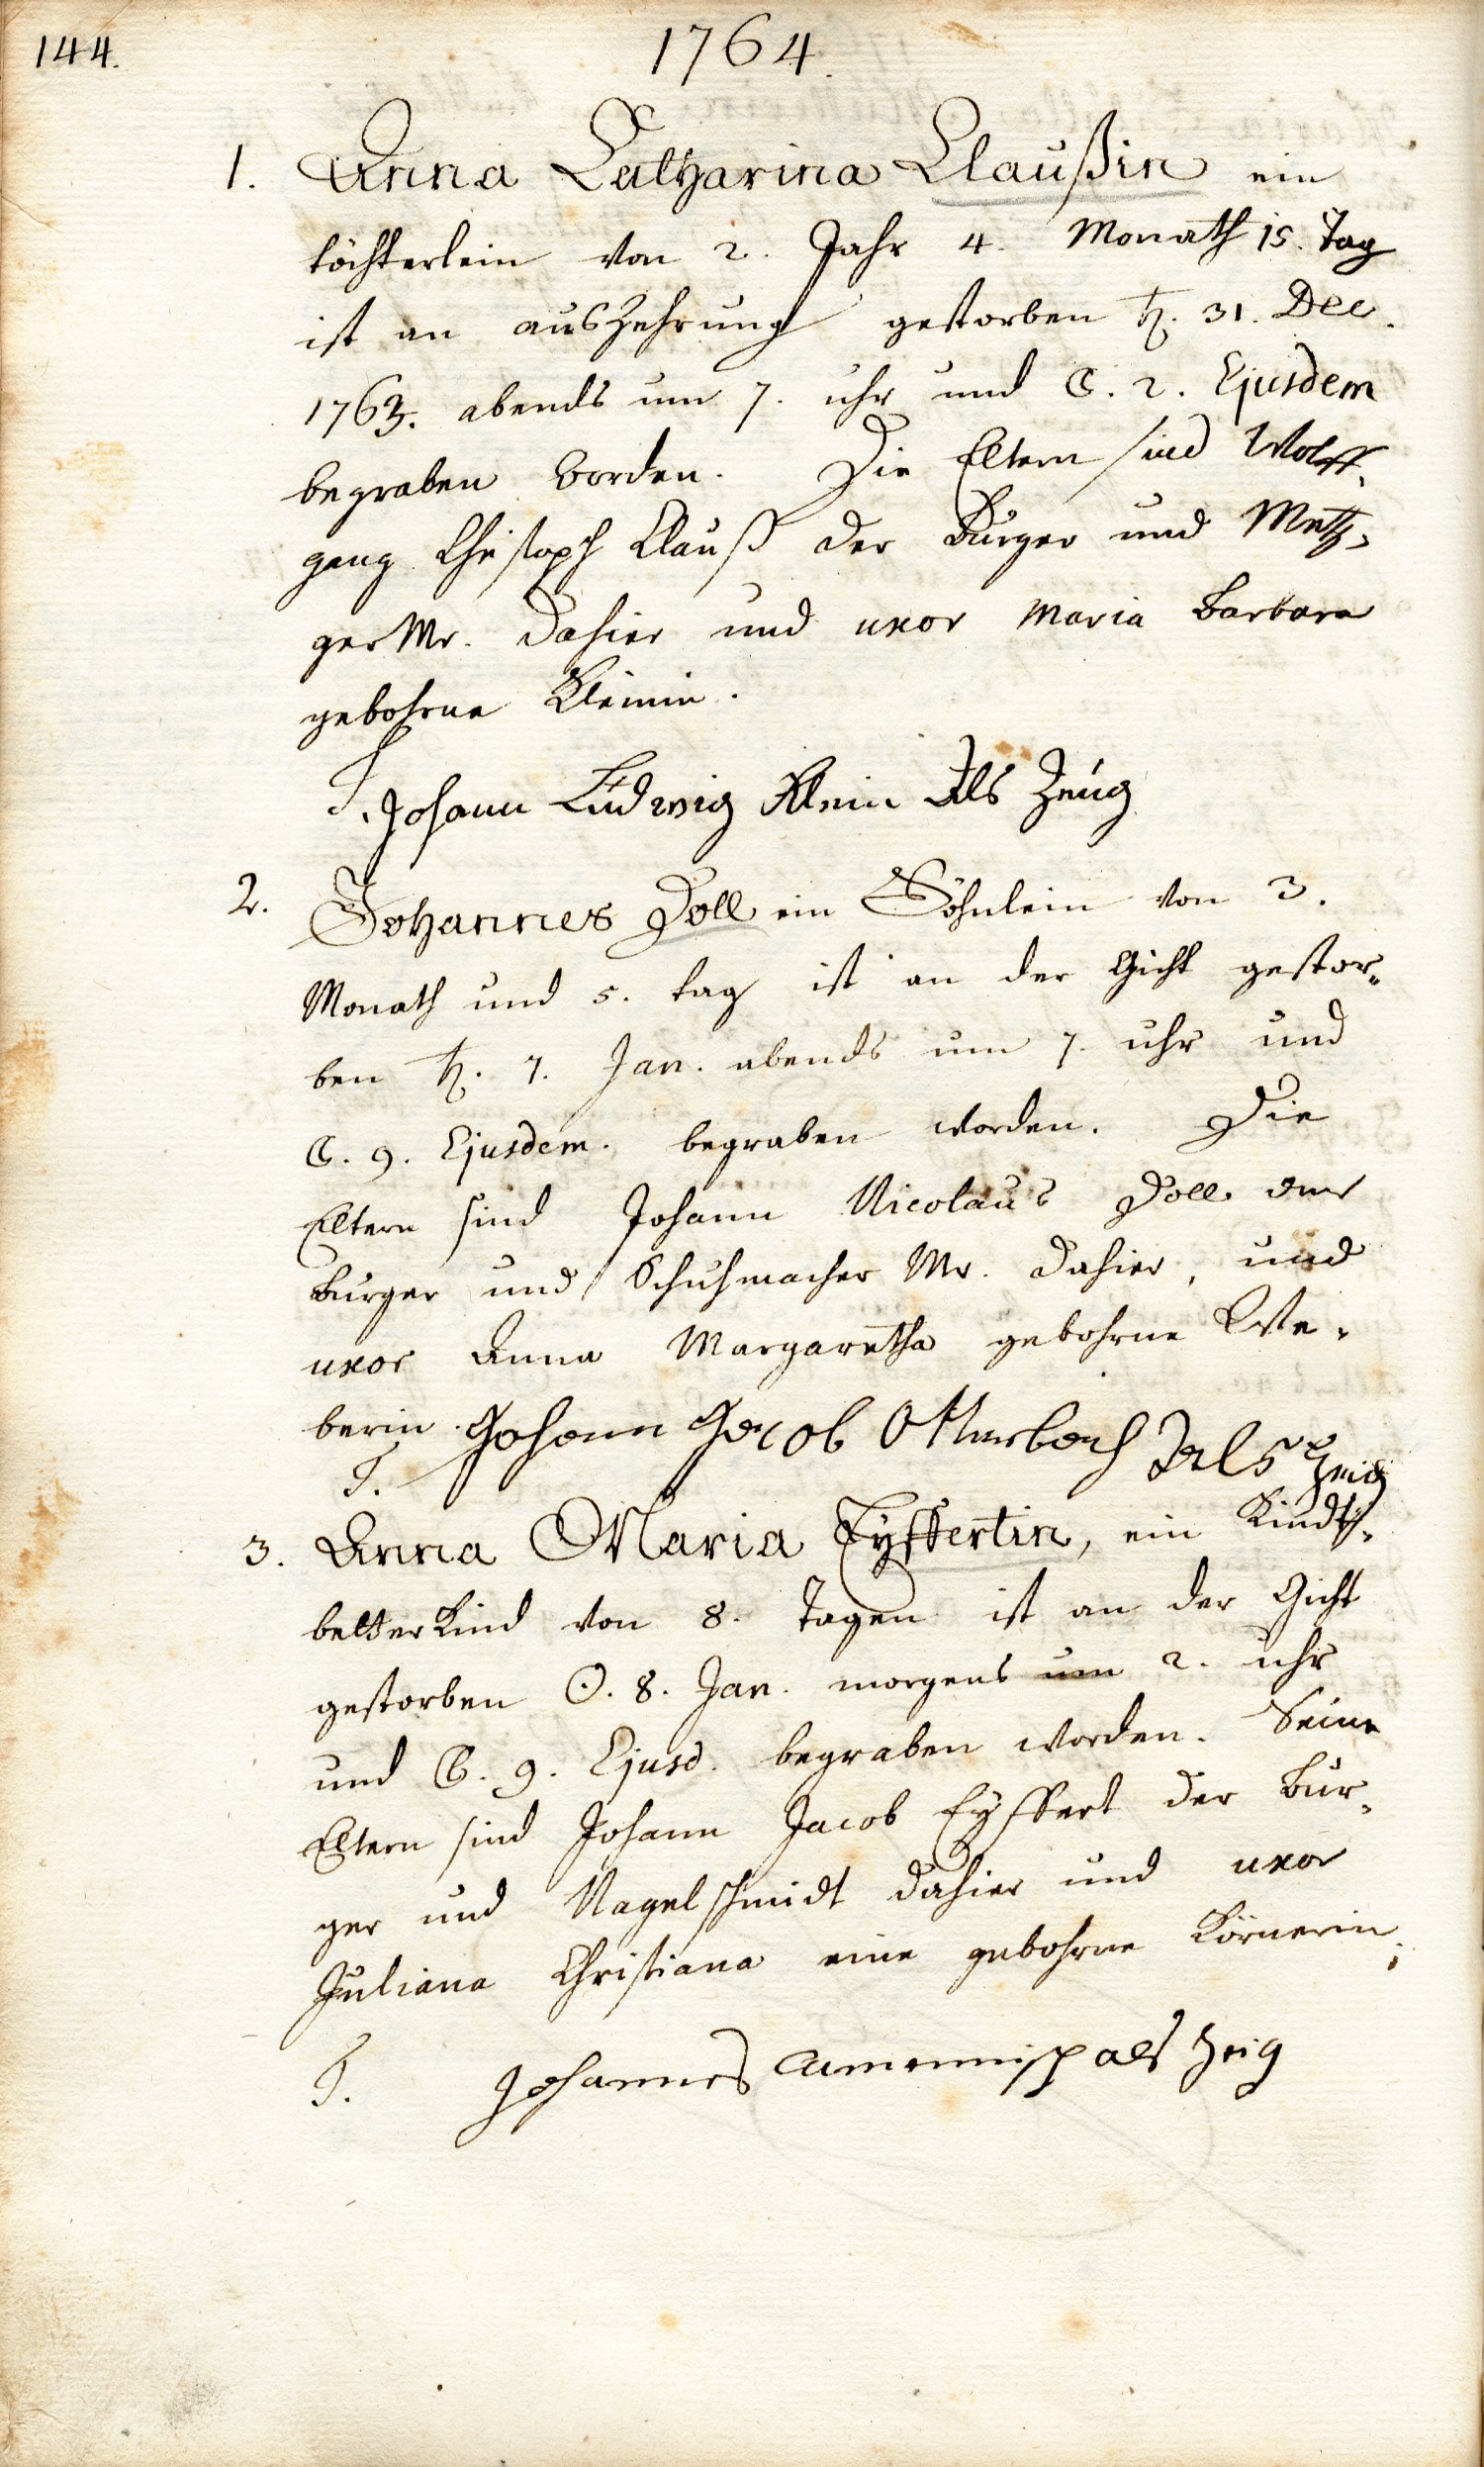 144.
1764.
1. Anna Catharina Claußin ein
töchterlein von 2. Jahr 4. Monath 15. Tag
ist an auszehrung gestorben ♄. 31. Dec.
1763. abends um 7. uhr und ☾. 2. Ejusdem
begraben worden. Die Eltern sind Wolff¬
gang Christoph Clauß der Burger und Metz¬
ger Mr. dahier und uxor Maria Barbara
gebohrne Kleinin.
T. Johann Ludwig Klein Als Zeug
2. Johannes Doll ein Söhnlein von 3.
Monath und 5. tag ist an der Gicht gestor¬
ben ♄. 7. Jan. abends um 7. uhr und
☾. 9. Ejusdem. begraben worden. Die
Eltern sind Johann Nicolaus Doll der
Burger und Schuhmacher Mr. dahier, und
uxor Anna Margaretha gebohrne We¬
berin. Johann Jacob Otterbach Als Zeig
T.
3. Anna Maria Eyffertin, ein Kindt¬
betterkind von 8. Tagen ist an der Gicht
gestorben ☉. 8. Jan. morgens um 2. uhr
und ☾. 9. Ejusd. begraben worden. Seine
Eltern sind Johann Jacob Eyffert der Bur¬
ger und Nagelschmidt dahier und uxor
Juliana Christiana eine gebohrne Körnerin.
T. Johannes als Zeig